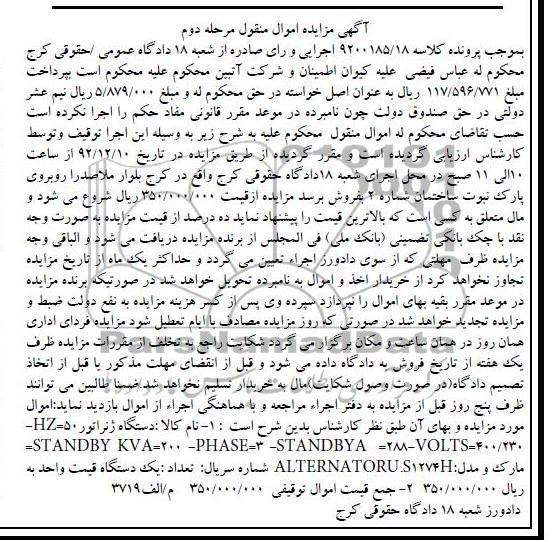 آگهی مزایده اموال منقول مرحله دوم
بموجب پرونده کلاسه ۹۲۰۰۱۸۵/۱۸ اجرایی و رای صادره از شعبه ۱۸ دادگاه عمومی /حقوقی کرج
محکوم له عباس فیضی علیه کیوان اطمینان و شرکت آتبین محکوم علیه محکوم است بپرداخت
مبلغ ۱۱۷/۵۹۶/۷۷۱ ریال به عنوان اصل خواسته در حق محکوم له و مبلغ ۵/۸۷۹/۰۰۰ ریال نیم عشر
دولتی در حق صندوق دولت چون نامبرده در موعد مقرر قانونی مفاد حکم را اجرا نکرده است
حسب تقاضای محکوم له اموال منقول محکوم علیه به شرح زیر به وسیله این اجرا توقیف وتوسط
کارشناس ارزیابی گردیده است و مقرر گردیده از طریق مزایده در تاریخ ۹۲/۱۲/۱۰ از ساعت
۱۰الی ۱۱ صبح در محل اجرای شعبه ۱۸دادگاه حقوقی کرج واقع در کرج بلوار ملاصدرا روبروی
پارک نبوت ساختمان شماره ۲ بفروش برسد مزایده ازقیمت ۳۵۰/۰۰۰/۰۰۰ریال شروع می شود و
مال متعلق به کسی است که بالاترین قیمت را پیشنهاد نماید ده درصد از قیمت مزایده به صورت وجه
نقد یا چک بانکی تضمینی (بانک ملی) فی المجلس از برنده مزایده دریافت می شود و الباقی وجه
مزایده ظرف مهلتی که از سوی دادورز اجراء تعیین می گردد و حداکثر یک ماه از تاریخ مزایده
تجاوز نخواهد کرد از خریدار اخذ و اموال به نامبرده تحویل خواهد شد در صورتیکه برنده مزایده
در موعد مقرر بقیه بهای اموال را نپردازد سپرده وی پس از کسر هزینه مزایده به نفع دولت ضبط و
مزایده تجدید خواهد شد در صورتی که روز مزایده مصادف با ایام تعطیل شود مزایده فردای اداری
همان روز در همان ساعت و مکان برگزار می گردد شکایت راجع به تخلف از مقررات مزایده ظرف
یک هفته از تاریخ فروش به دادگاه داده می شود و قبل از انقضای مهلت مذکور یا قبل از اتخاذ
تصمیم دادگاه(در صورت وصول شکایت)مال به خریدار تسلیم نخواهد شد ضمنا طالبین می توانند
ظرف پنج روز قبل از مزایده به دفتر اجراء مراجعه و با هماهنگی اجراء از اموال بازدید نماید:اموال
مورد مزایده و بهای آن طبق نظر کارشناس بدین شرح است : ۱- نام کالا :دستگاه ژنراتور HZ=۵۰-
=STANDBY KVA=۲۰۰ -PHASE=۳ -STANDBYA =۲۸۸-VOLTS=۴۰۰/۲۳۰
مارک و مدل:ALTERNATORU.S۱۲۷۴H شماره سریال: تعداد :یک دستگاه قیمت واحد به
ریال ۳۵۰/۰۰۰/۰۰۰ ۲- جمع قیمت اموال توقیفی ۳۵۰/۰۰۰/۰۰۰ م/الف۳۷۱۹
دادورز شعبه ۱۸ دادگاه حقوقی کرج
ParsNamadData